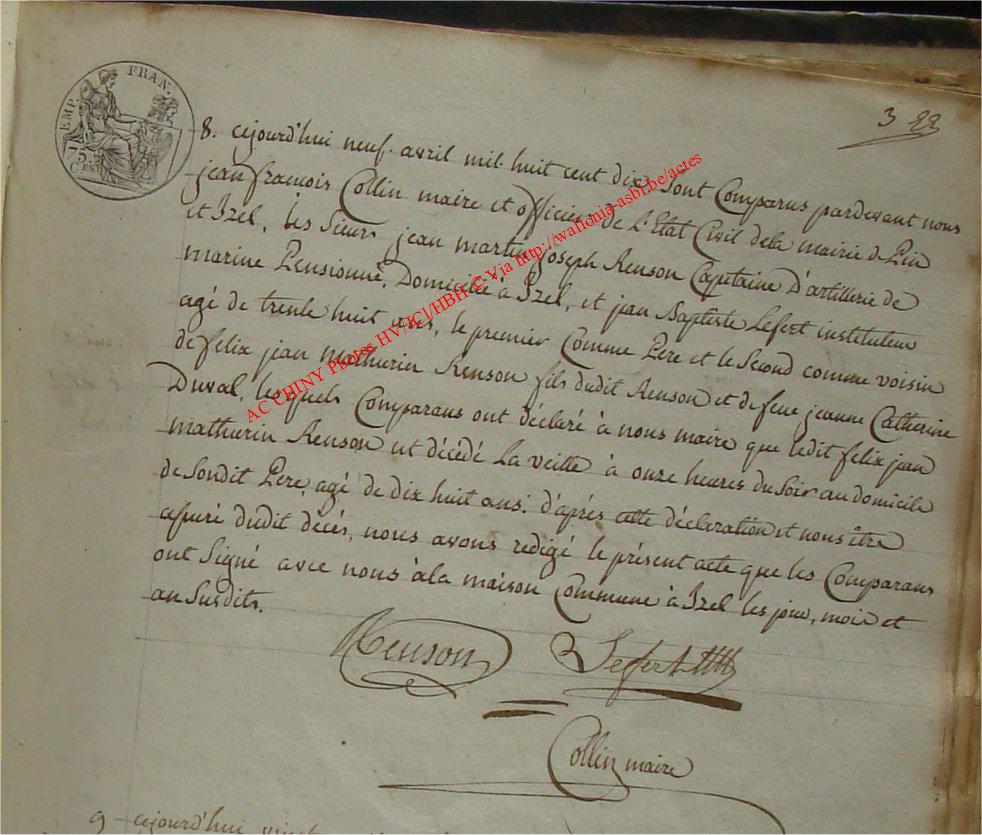 EMP. FRAN.
5. C.
C.EST
3 88
8. cejourd'hui neuf avril mil huit cent dix, sont Comparus pardevant nous
jean françois Collin maire et officier de l'Etat Civil dela mairie de Pin
et Izel, les Sieurs jean martin joseph Renson Capitaine D'artillerie de
marine Pensionné, Domicilié à Izel, et jean Baptiste Lefert instituteur
agé de trente huit ans, le premier Comme Pere et le Second comme voisin
de felix jean mathurin Renson fils dudit Renson et de feue jeanne Catherine
Duval, les quels Comparans ont déclaré à nous maire que ledit felix jean
mathurin Renson est décédé la veille à onze heures du Soir au domicile
de Sondit Pere, agé de dix huit ans. d'aprés cette déclaration et nous être
assuré dudit décés, nous avons redigé le présent acte que les Comparans
ont Signé avec nous àla maison Commune à Izel les jour, mois et
an Susdits.
Renson
Lefert
Collin maire
9 cejourd'hui vingt
AC CHINY Photos HV/ICI/HBH © Via http://wallonia-asbl.be/actes